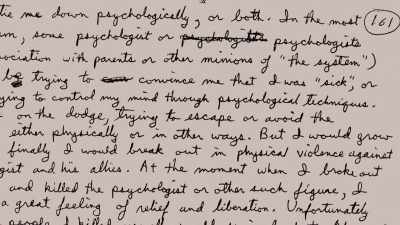 tie me down psychologically, or both. In the most (161)
am, some psychologist or psychologists psychologists
sociation with parents or other minions of "the system")
be trying to convince me that I was "sick", or
ying to control my mind through psychological techniques.
on the dodge, trying to escape or avoid the
either physically or in other ways. But I would grow
finally I would break out in physical violence against
gist and his allies. At the moment when I broke out
and killed the psychologist or other such figure, I
a great feeling of relief and liberation. Unfortunately
people I killed